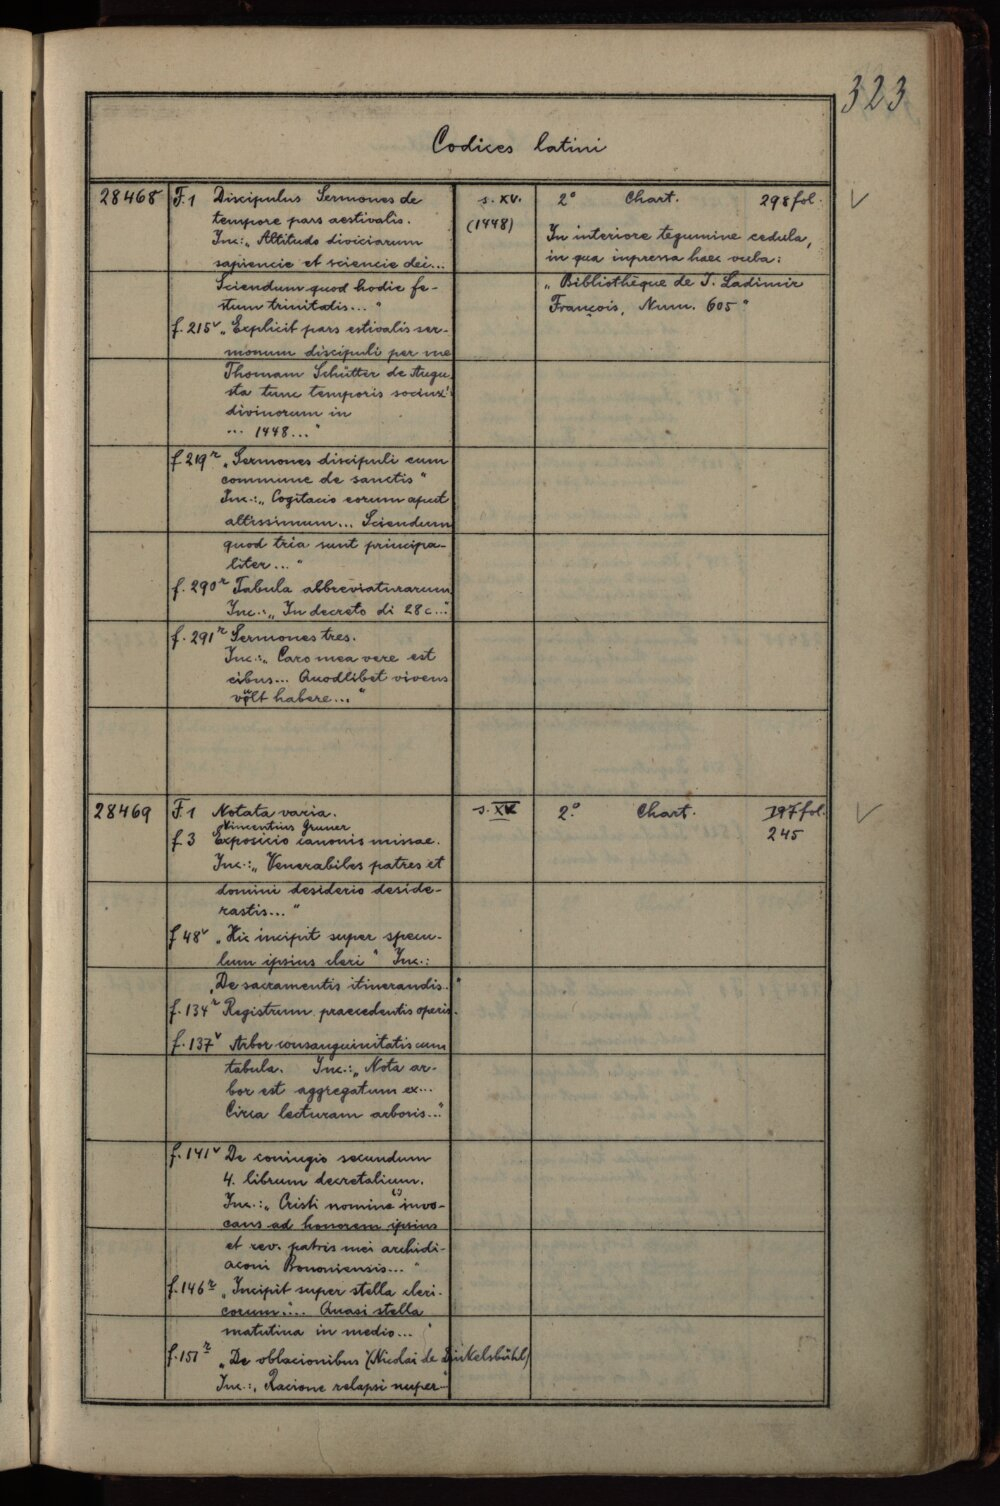 323
Codices latini
28468 F. 1 Discipulus Sermones de
tempore pars aestivalis.
Inc.: „Altitudo diviciarum
sapiencie et sciencie dei...
Sciendum quod hodie fe-
stum trinitatis... "
f. 215v „Explicit pars estivalis ser-
monum discipuli per me
Thomam Schütter de Augu
sta tunc temporis socium
divinorum in
... 1448..."
f 219r „Sermones discipuli cum
commune de sanctis"
Inc.: „Cogitacio eorum aput
altissimum... Sciendum
quod tria sunt principa-
liter... "
f. 290r Tabula abbreviaturarum
Inc.: „In decreto di 28 c..."
f. 291r Sermones tres.
Inc.: „Caro mea vere est
cibus... Quodlibet vivens
vult habere..."
s. XV.
(1448)
2° Chart. 298 fol.
In interiore tegumine cedula,
in qua inpressa haec verba:
„Bibliothèque de J. Ladimir
François, Num. 605"
28469 F. 1 Notata varia.
Vincentius Gruner
f 3 Exposicio canonis missae.
Inc.: „Venerabiles patres et
domini desiderio deside-
rastis..."
f 48v „Hic incipit super specu-
lum ipsius cleri" Inc.:
„De sacramentis itinerandis."
f. 134r Registrum praecedentis operis.
f. 137v Arbor consanguinitatis cum
tabula. Inc.: „Nota ar-
bor est aggregatum ex...
Circa lecturam arboris..."
f. 141v De coniugio secundum
4. librum decretalium.
Inc.: „Cristi nomine (!) invo-
cans ad honorem ipsius
et rev. patris mei archidi-
aconi Bononiensis... "
f. 146r „Incipit super stella cleri-
corum."... Quasi stella
matutina in medio... "
f. 151r „De oblacionibus" (Nicolai de Dinkelsbühl)
Inc.: „Racione relapsi nuper..."
s. XV
2°. Chart. 197 fol.
245